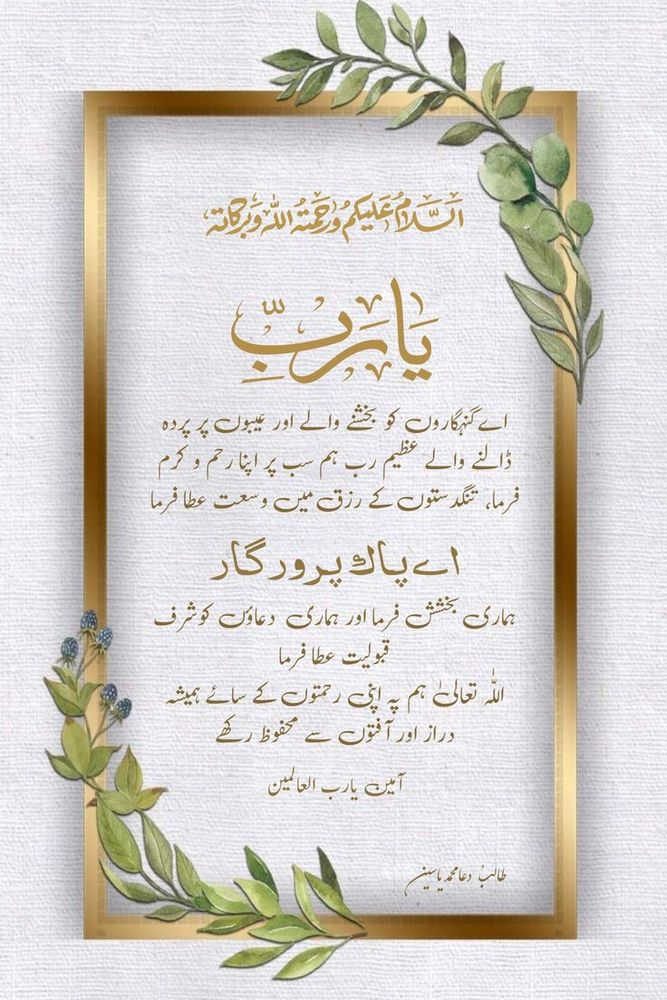 اَلسَّلَامُ عَلَيْكُمْ وَرَحْمَةُ اللهِ وَبَرَكَاتُهُ
يَا رَبِّ
اے گنہگاروں کو بخشنے والے اور عیبوں پر پردہ
ڈالنے والے عظیم رب ہم سب پر اپنا رحم و کرم
فرما، تنگدستوں کے رزق میں وسعت عطا فرما
اے پاک پرورگار
ہماری بخشش فرما اور ہماری دعاؤں کو شرف
قبولیت عطا فرما
اللہ تعالیٰ ہم پہ اپنی رحمتوں کے سائے ہمیشہ
دراز اور آفتوں سے محفوظ رکھے
آمین یارب العالمین
طالب دعا محمد یاسین